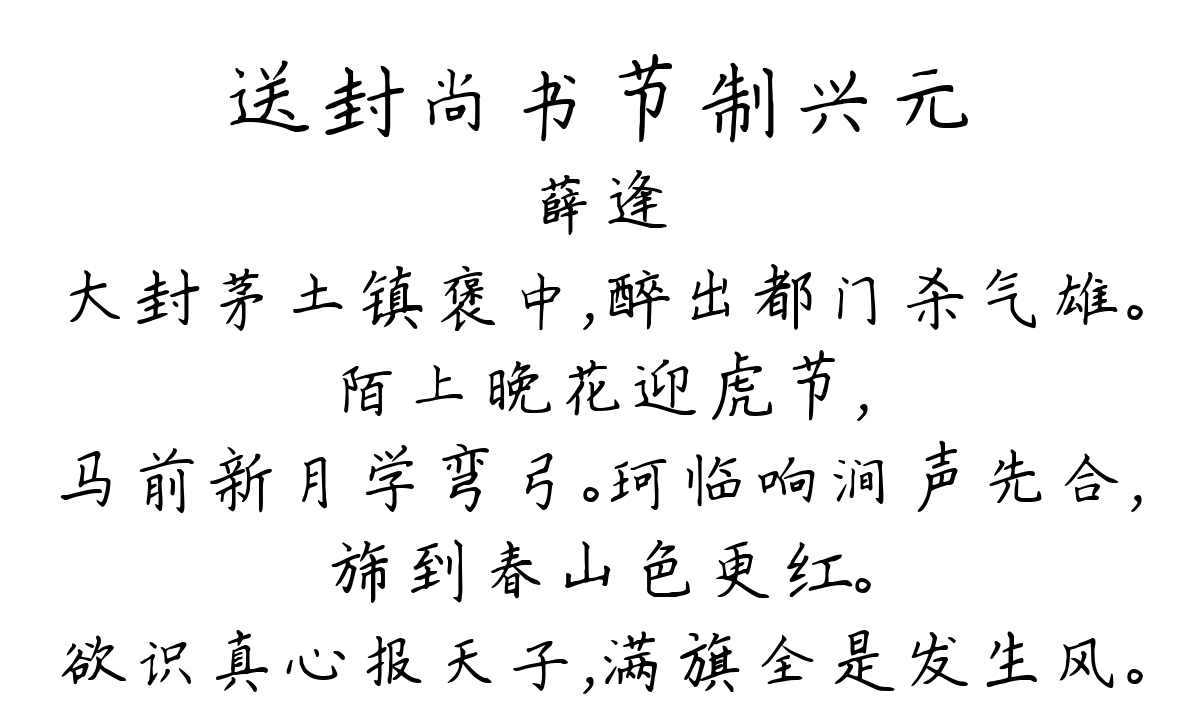 送封尚书节制兴元
薛逢
大封茅土镇褒中,醉出都门杀气雄。
陌上晚花迎虎节,
马前新月学弯弓。珂临响涧声先合,
旆到春山色更红。
欲识真心报天子,满旗全是发生风。